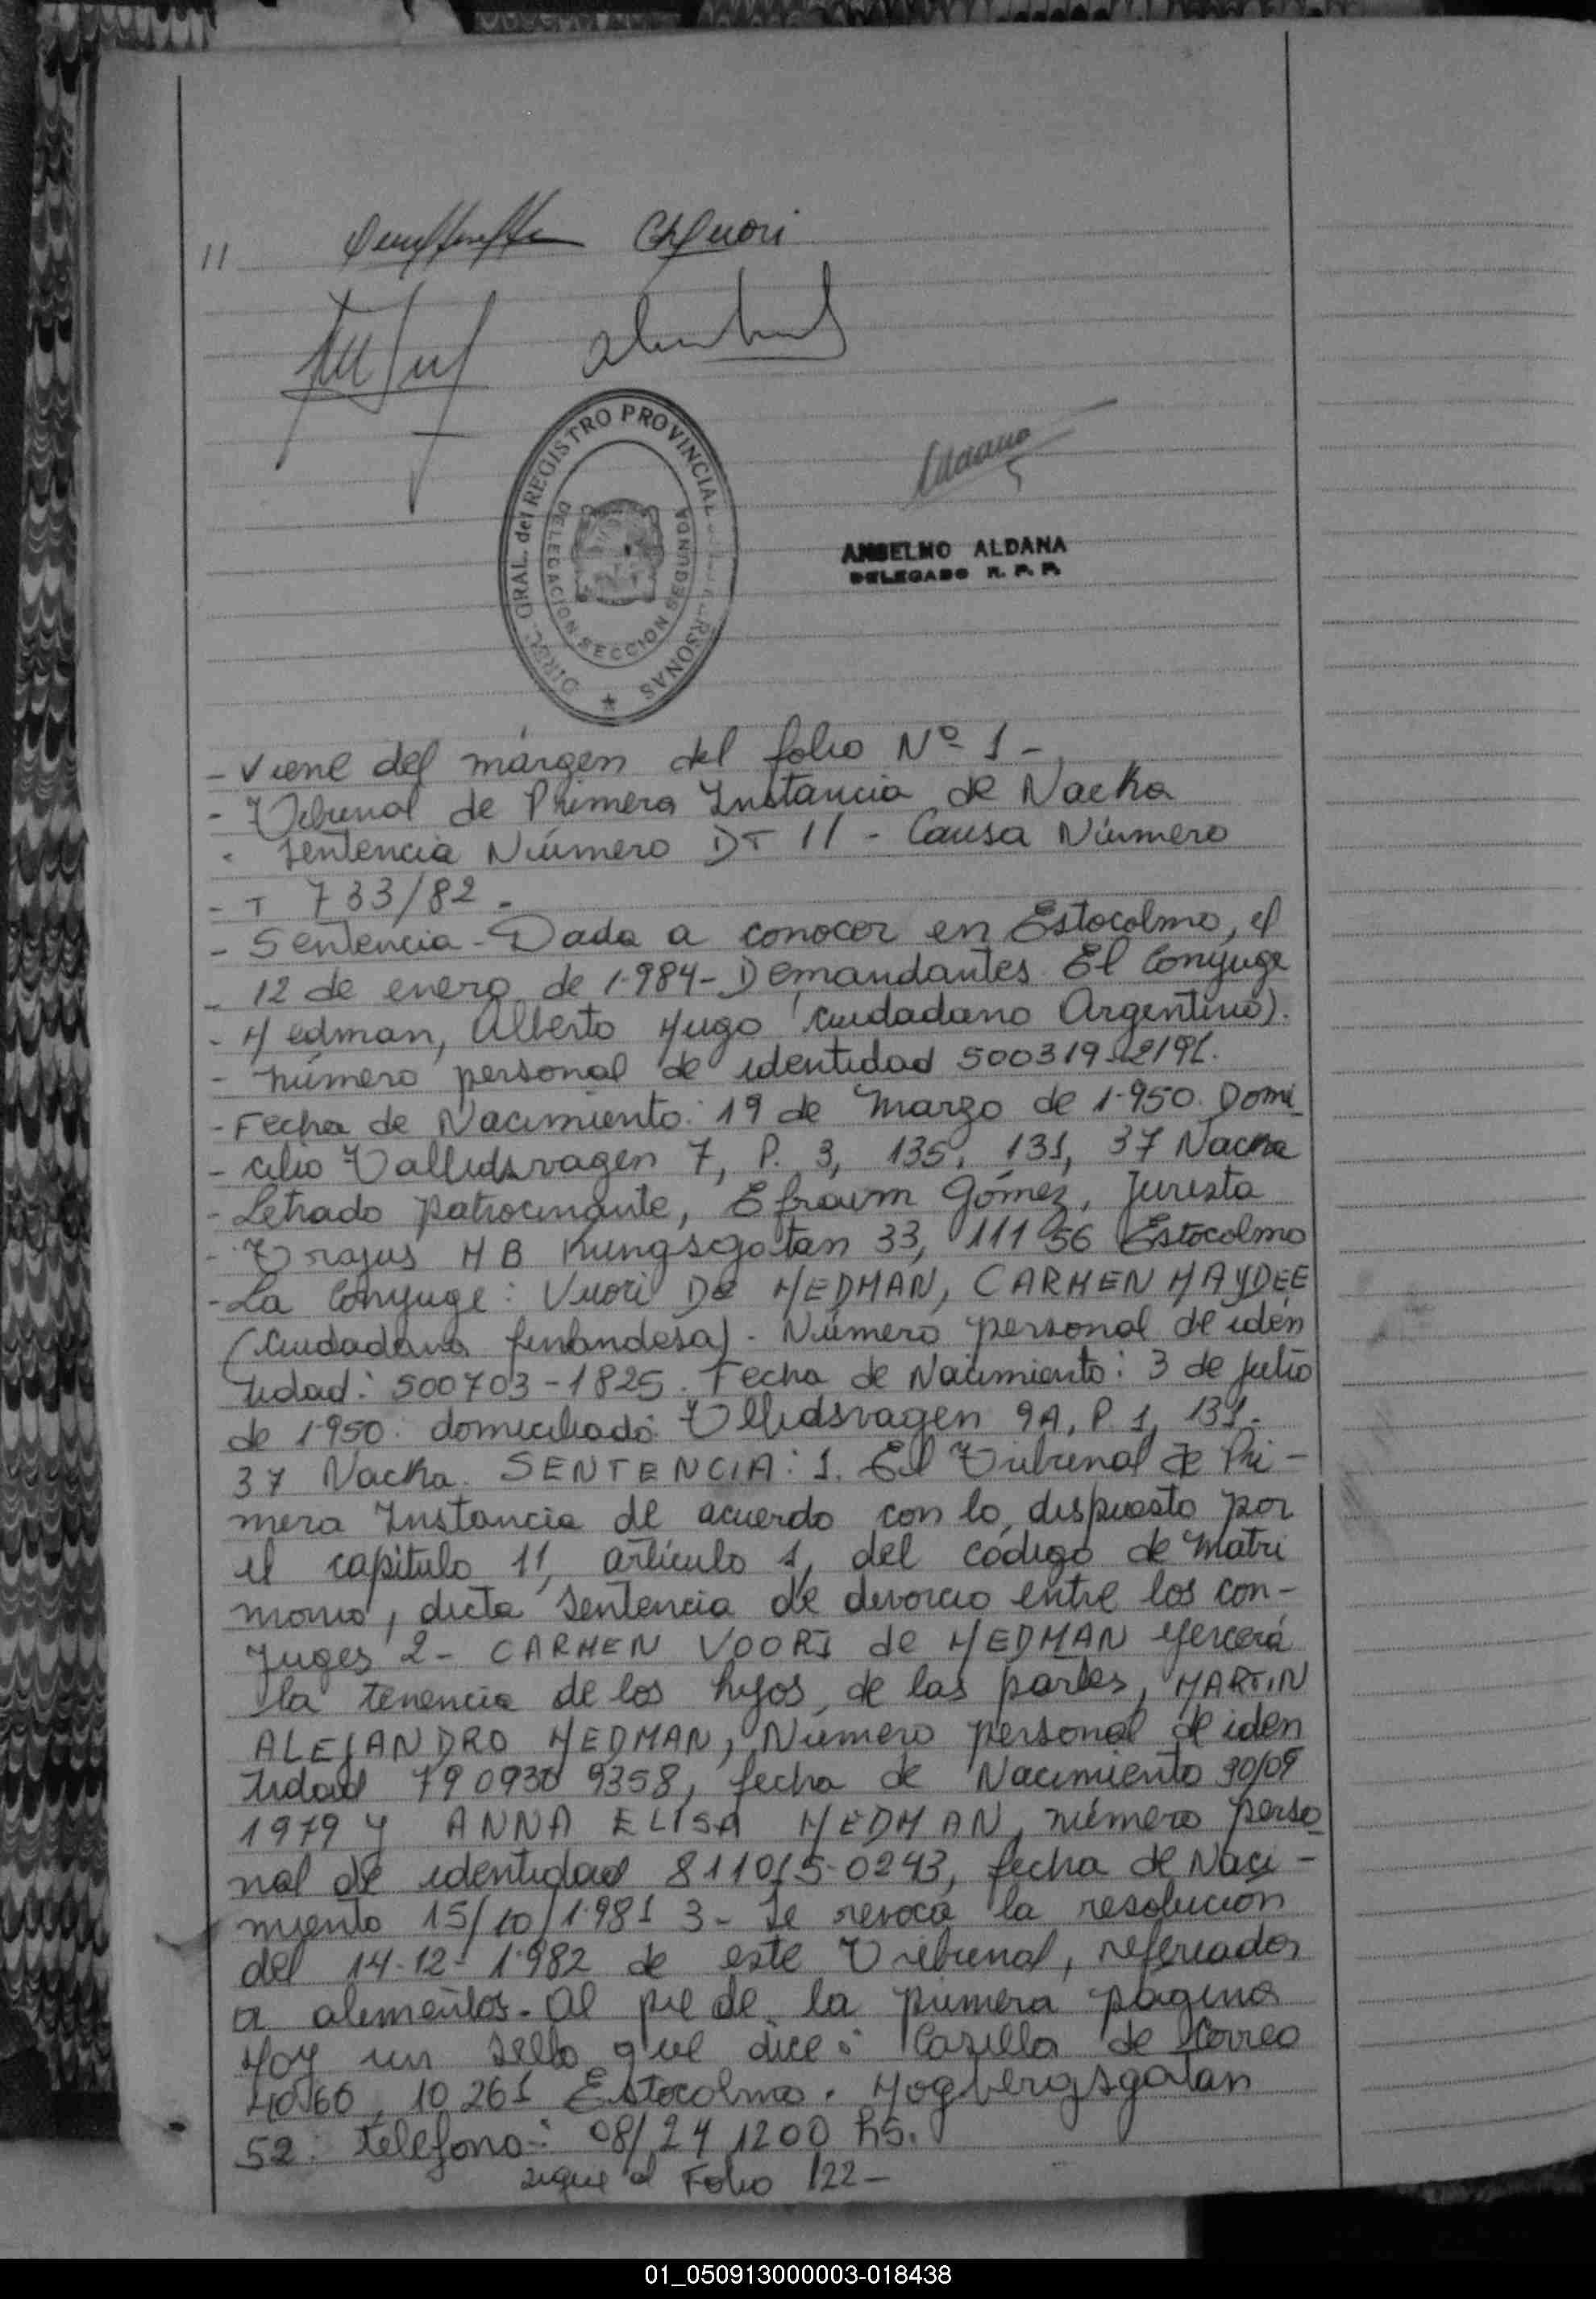 11
CHVuori
DIREC. GRAL. del REGISTRO PROVINCIAL PERSONAS
DELEGACION SECCION SEGUNDA
ANSELMO ALDANA
DELEGADO R. P. P.
- Viene del márgen del folio Nº 1 -
- Tribunal de Primera Instancia de Nacka
- Sentencia Número DT 11 - Causa Número
- T 733/82 -
- Sentencia - Dada a conocer en Estocolmo, el
- 12 de enero de 1.984 - Demandantes El Conyuge
- Hedman, Alberto Hugo (ciudadano Argentino).
- número personal de identidad 500319-2191.
- Fecha de Nacimiento: 19 de Marzo de 1.950. Domi
- cilio Vallidsvagen 7, P. 3, 135, 131, 37 Nacka
- Letrado patrocinante, Efraim Gómez, Jurista
- Trajus HB Kungsgatan 33, 111 56 Estocolmo
- La Conyuge: Vuori De HEDMAN, CARMEN HAYDÉE
(Ciudadana finlandesa) - Número personal de iden
tidad: 500703-1825. Fecha de Nacimiento: 3 de Julio
de 1.950. domiciliado Ullidsvagen 9A, P. 1, 131-
37 Nacka. SENTENCIA: 1. El Tribunal de Pri -
mera Instancia de acuerdo con lo dispuesto por
el capitulo 11, artículo 1, del código de Matri
monio, dicta sentencia de divorcio entre los con -
Juges 2 - CARMEN VOORI de HEDMAN ejercerá
la tenencia de los hijos de las partes, MARTIN
ALEJANDRO HEDMAN, Número personal de iden
tidad 790930 9358, fecha de Nacimiento 30/09
1979 y ANNA ELISA HEDMAN, número perso
nal de identidad 811015-0243, fecha de Naci -
miento 15/10/1.981 3 - Se revoca la resolución
del 14-12-1.982 de este Tribunal, referiados
a alimentos - Al pie de la primera página
Hay un sello que dice: Casilla de Correo
40.60, 10 261 Estocolmo. Hogbergsgatan
52. teléfono: 08/24 1200 hs.
sigue al Folio 122 -
01_050913000003-018438